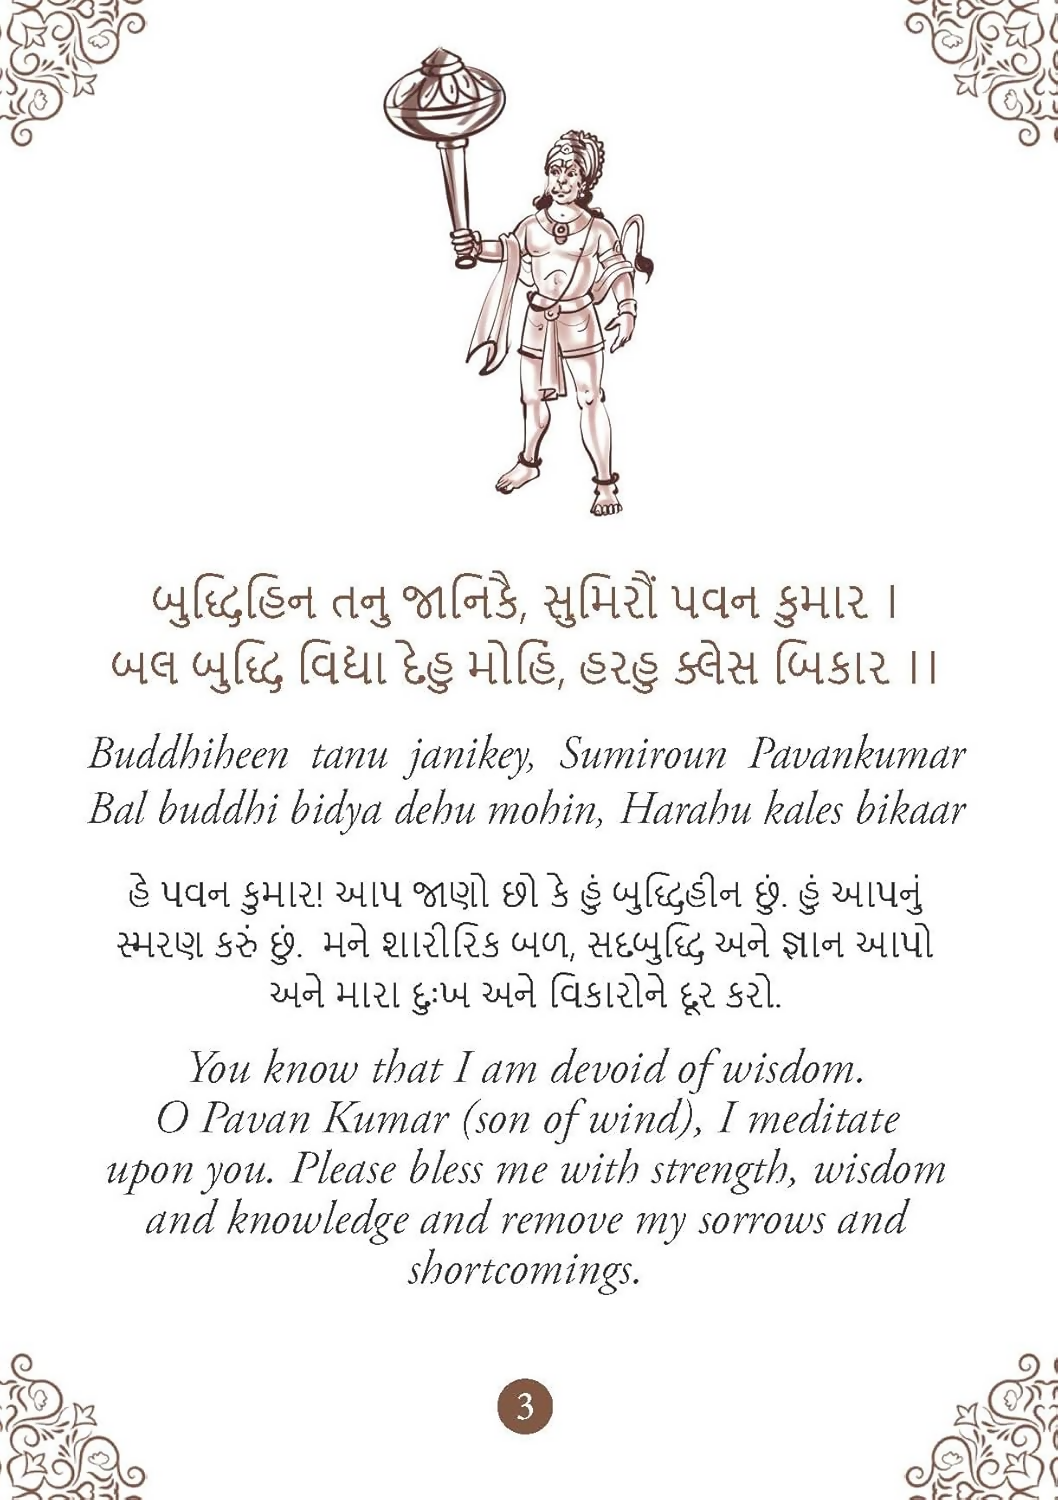 બુદ્ધિહિન તનુ જાનિકૈ, સુમિરૌં પવન કુમાર ।
બલ બુદ્ધિ વિદ્યા દેહુ મોહિં, હરહુ ક્લેસ બિકાર ।।
Buddhiheen tanu janikey, Sumiroun Pavankumar
Bal buddhi bidya dehu mohin, Harahu kales bikaar
હે પવન કુમાર! આપ જાણો છો કે હું બુદ્ધિહીન છું. હું આપનું
સ્મરણ કરું છું. મને શારીરિક બળ, સદબુદ્ધિ અને જ્ઞાન આપો
અને મારા દુઃખ અને વિકારોને દૂર કરો.
You know that I am devoid of wisdom.
O Pavan Kumar (son of wind), I meditate
upon you. Please bless me with strength, wisdom
and knowledge and remove my sorrows and
shortcomings.
3